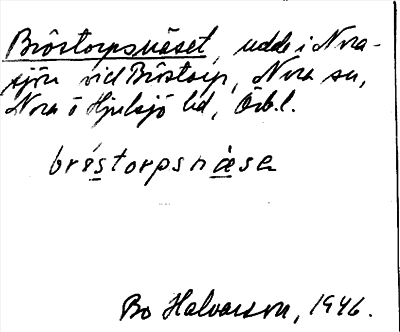 Bröstorpsnäset, udde i Nora-
sjön vid Bröstorp, Nora sn,
Nora o Hjulsjö hd, Örb.l.
bröstorpsnäsen
Bo Halvarson, 1946.